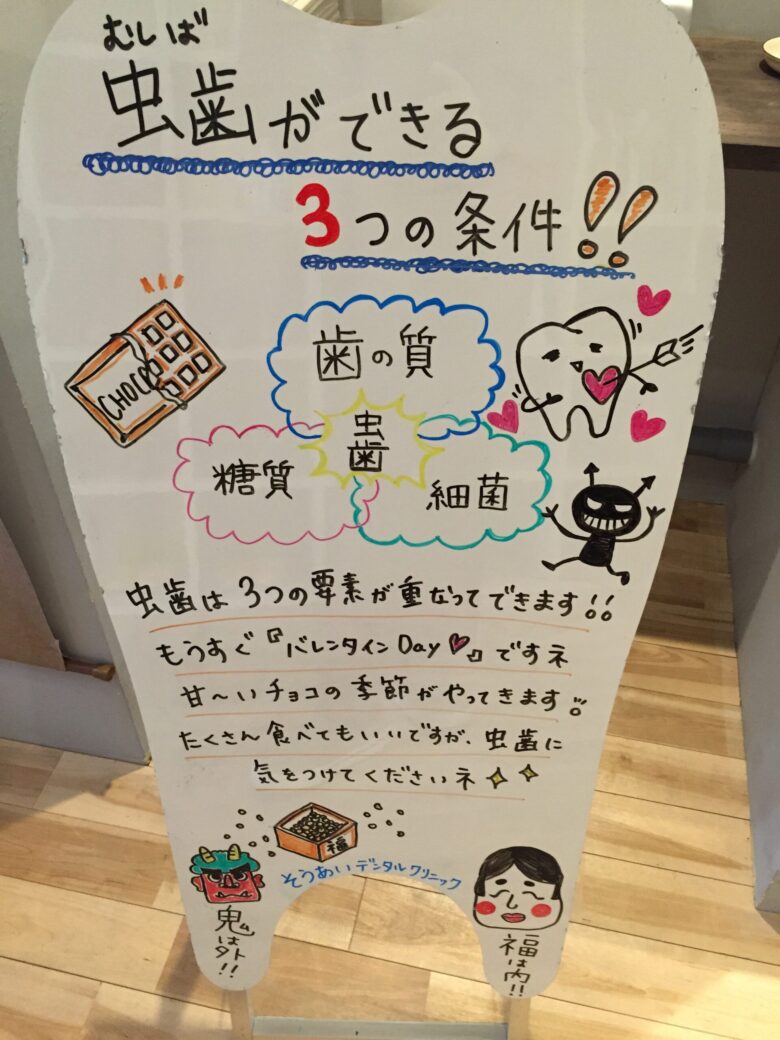 むしば
虫歯ができる
3つの条件!!
CHOCO
歯の質
虫歯
糖質
細菌
虫歯は3つの要素が重なってできます!!
もうすぐ『バレンタインDay♥』ですネ
甘～いチョコの季節がやってきます!!
たくさん食べてもいいですが、虫歯に
気をつけてくださいネ
福
そうあいデンタルクリニック
鬼は外!!
福は内!!